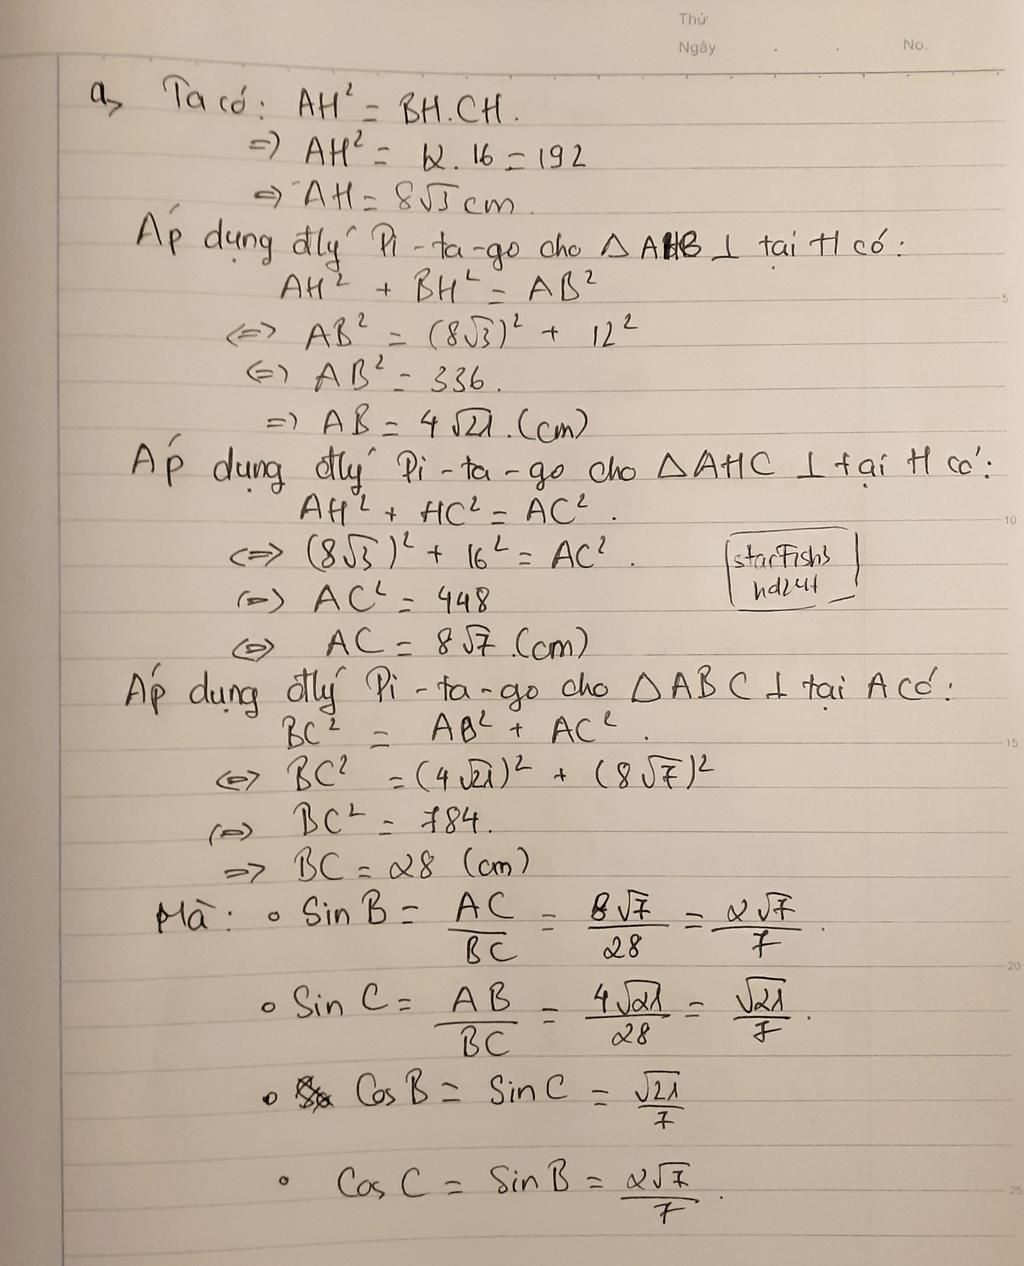 Thứ
Ngày . . No.
a, Ta có: AH² = BH.CH.
=> AH² = 12.16 = 192
=> AH = 8√3 cm.
Áp dụng đlý Pi-ta-go cho △AHB ⊥ tại H có:
AH² + BH² = AB²
<=> AB² = (8√3)² + 12²
<=> AB² = 336.
=> AB = 4√21. (cm)
Áp dụng đlý Pi-ta-go cho △AHC ⊥ tại H có:
AH² + HC² = AC².
<=> (8√3)² + 16² = AC².
<=> AC² = 448
<=> AC = 8√7. (cm)
starFish3
hd24h
Áp dụng đlý Pi-ta-go cho △ABC ⊥ tại A có:
BC² = AB² + AC².
<=> BC² = (4√21)² + (8√7)²
<=> BC² = 784.
=> BC = 28 (cm)
Mà: • Sin B = AC/BC = 8√7/28 = 2√7/7.
• Sin C = AB/BC = 4√21/28 = √21/7.
• Cos B = Sin C = √21/7
• Cos C = Sin B = 2√7/7.
5
10
15
20
25